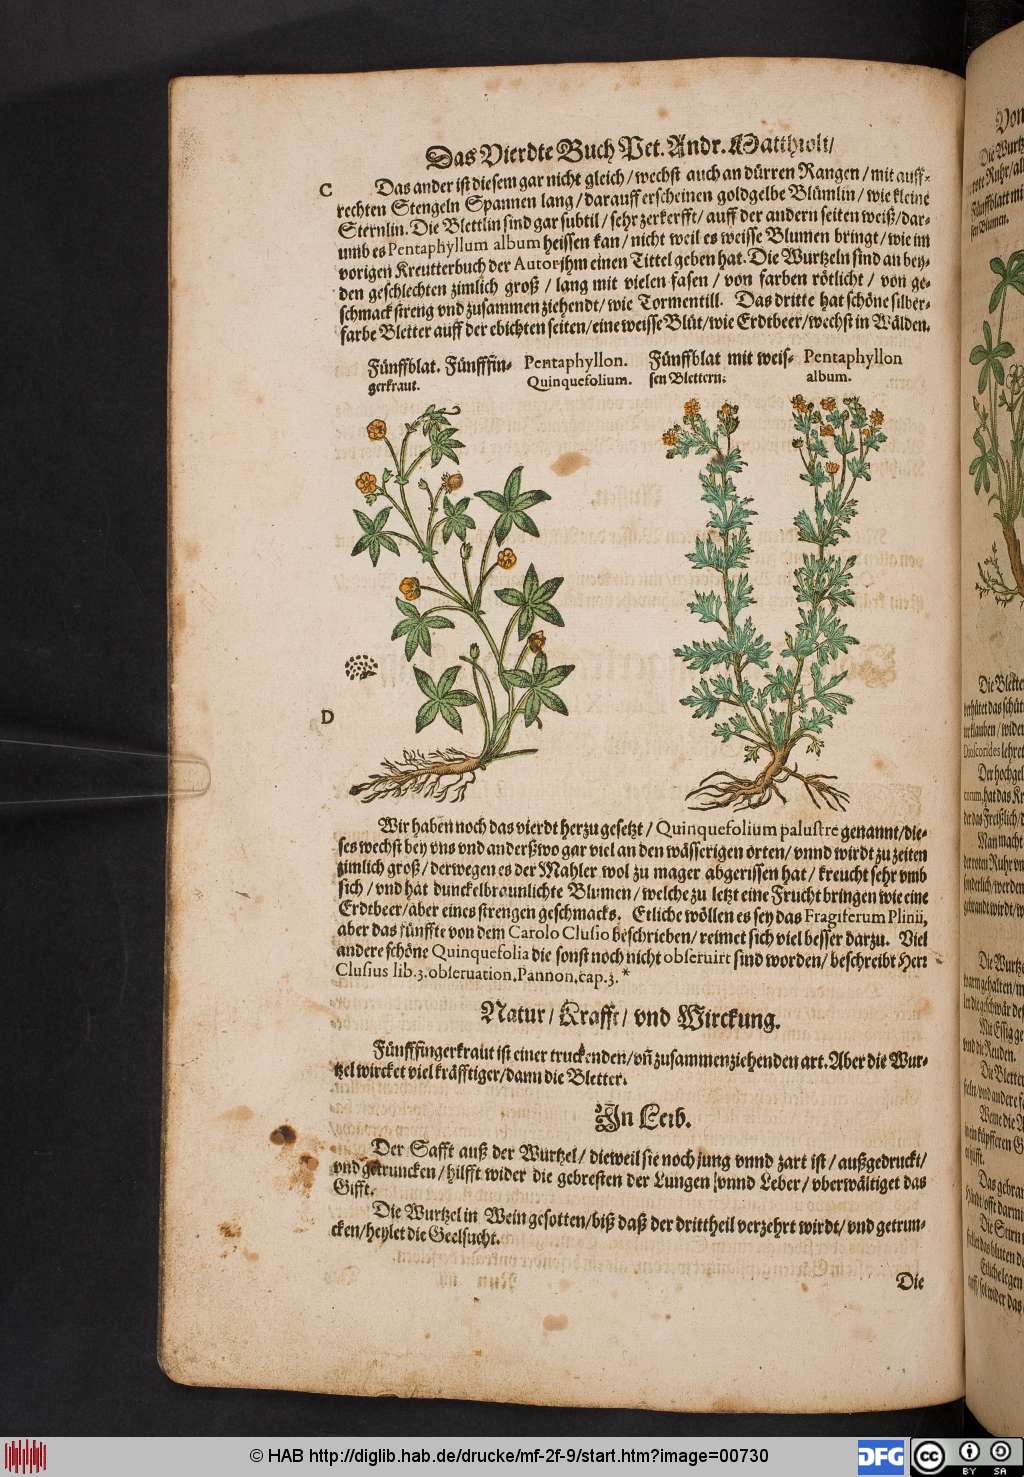 Das Vierdte Buch Pet. Andr. Matthioli/
C
Das ander ist diesem gar nicht gleich/wechst auch an dürren Rangen/mit auff-
rechten Stengeln Spannen lang/darauff erscheinen goldgelbe Blümlin/wie kleine
Sternlin. Die Blettlin sind gar subtil/sehr zerkerfft/auff der andern seiten weiß/dar-
umb es Pentaphyllum album heissen kan/nicht weil es weisse Blumen bringt/wie im
vorigen Kreutterbuch der Autor jhm einen Tittel geben hat. Die Wurtzeln sind an bey-
den geschlechten zimlich groß/lang mit vielen fasen/von farben rötlicht/von ge-
schmack streng vnd zusammen ziehendt/wie Tormentill. Das dritte hat schöne silber-
farbe Bletter auff der ebichten seiten/eine weisse Blüt/wie Erdtbeer/wechst in Wälden.
Fünffblat. Fünfffin-
gerkraut.
Pentaphyllon.
Quinquefolium.
Fünffblat mit weis-
sen Blettern.
Pentaphyllon
album.
D
Wir haben noch das vierdt herzu gesetzt/Quinquefolium palustre genannt/die-
ses wechst bey vns vnd anderßwo gar viel an den wässerigen orten/vnnd wirdt zu zeiten
zimlich groß/derwegen es der Mahler wol zu mager abgerissen hat/kreucht sehr vmb
sich/vnd hat dunckelbraunlichte Blumen/welche zu letzt eine Frucht bringen wie eine
Erdtbeer/aber eines strengen geschmacks. Etliche wöllen es sey das Fragiferum Plinii,
aber das fünffte von dem Carolo Clusio beschrieben/reimet sich viel besser darzu. Viel
andere schöne Quinquefolia die sonst noch nicht obseruirt sind worden/beschreibt Herr
Clusius lib.3.obseruation.Pannon.cap.3.*
Natur/Krafft/vnd Wirckung.
Fünfffingerkraut ist einer truckenden/vñ zusammenziehenden art. Aber die Wur-
tzel wircket viel kräfftiger/dann die Bletter.
In Leib.
Der Safft auß der Wurtzel/dieweil sie noch jung vnnd zart ist/außgedruckt/
vnd getruncken/hilfft wider die gebresten der Lungen/vnnd Leber/vberwältiget das
Gifft.
Die Wurtzel in Wein gesotten/biß daß der drittheil verzehrt wirdt/vnd getrun-
cken/heylet die Geelsucht.
Die
© HAB http://diglib.hab.de/drucke/mf-2f-9/start.htm?image=00730
DFG
cc BY SA